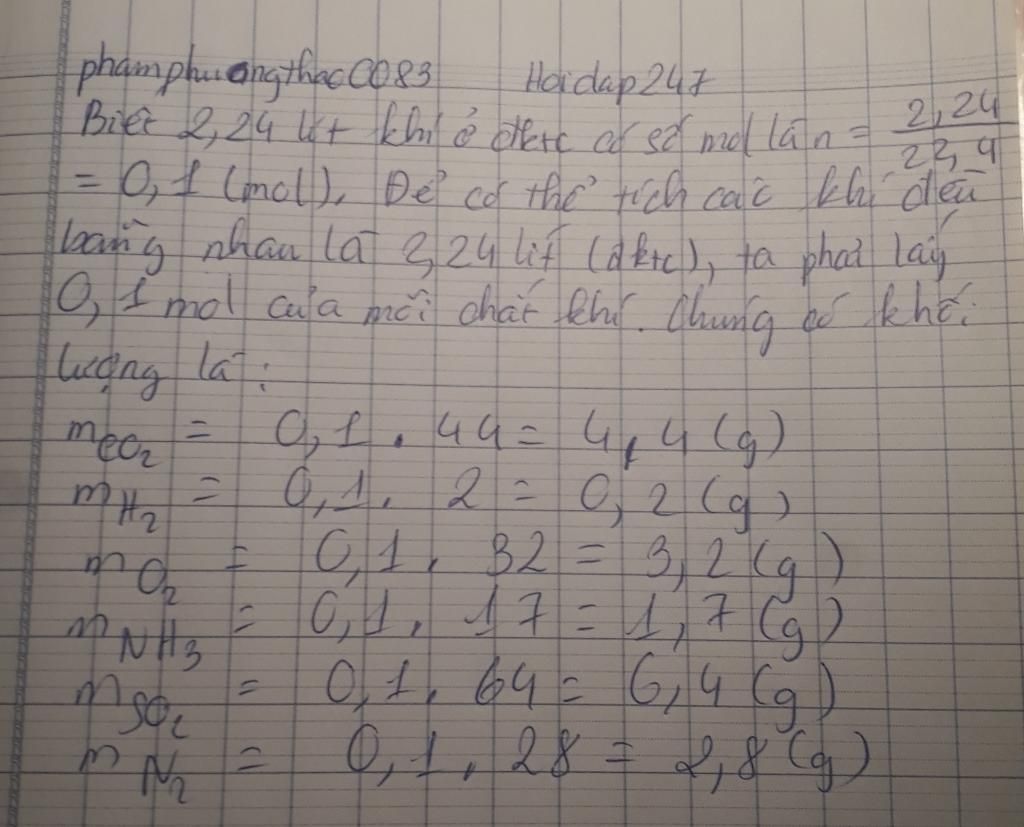 phamphuongthao0083 Hoidap247
Biết 2,24 lít khí ở đktc có số mol là n = 2,24 / 22,4
= 0,1 (mol). Để có thể tích các khí đều
bằng nhau là 2,24 lít (đktc), ta phải lấy
0,1 mol của mỗi chất khí. Chúng có khối
lượng là:
mCO₂ = 0,1 . 44 = 4,4 (g)
mH₂ = 0,1 . 2 = 0,2 (g)
mO₂ = 0,1 . 32 = 3,2 (g)
mNH₃ = 0,1 . 17 = 1,7 (g)
mSO₂ = 0,1 . 64 = 6,4 (g)
mN₂ = 0,1 . 28 = 2,8 (g)